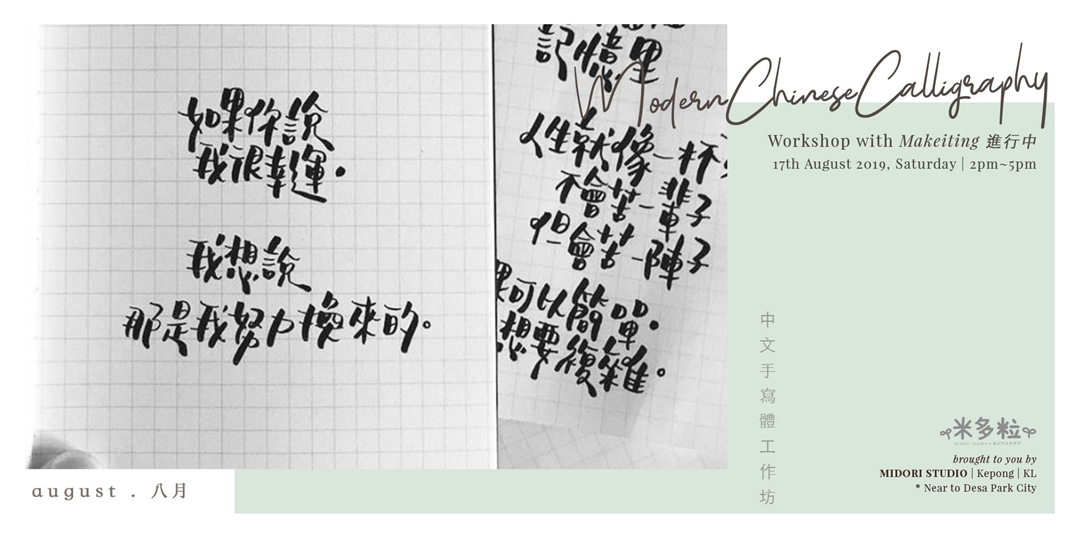 如果你說
我很幸運。
我想說
那是我努力換來的。
記憶裡
人生就像一杯
不會苦一輩子
但會苦一陣子
果可以簡單。
想要複雜。
Modern Chinese Calligraphy
Workshop with Makeiting 進行中
17th August 2019, Saturday | 2pm~5pm
中文手寫體工作坊
米多粒
brought to you by
MIDORI STUDIO | Kepong | KL
* Near to Desa Park City
august . 八月